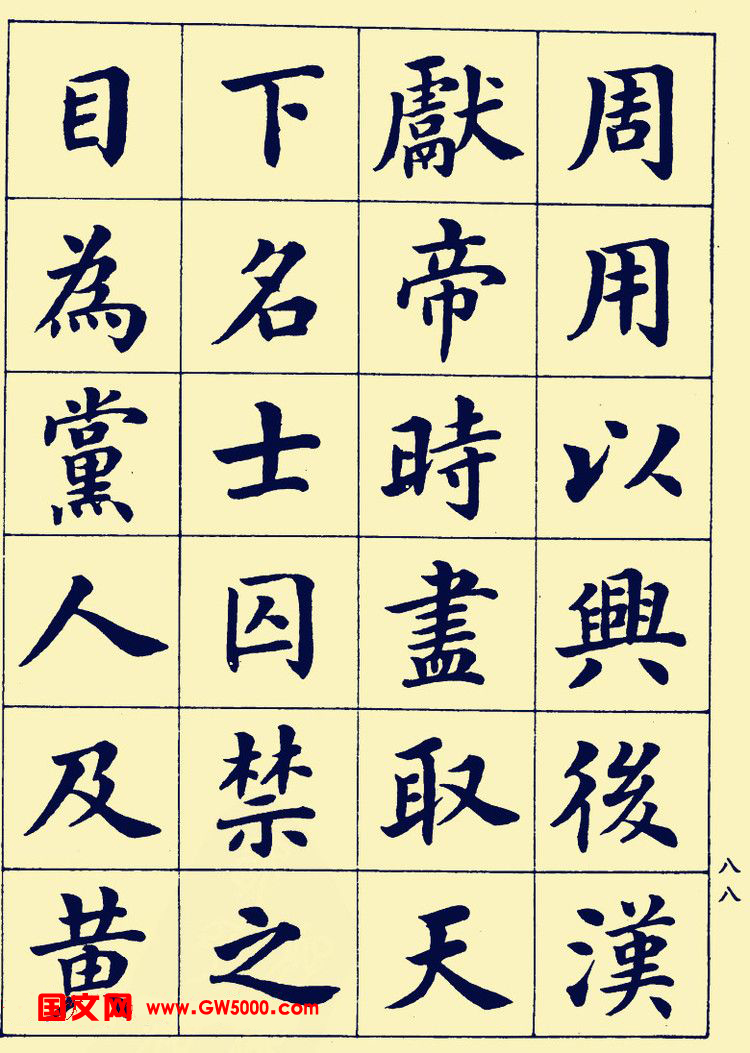 周用以興後漢
獻帝時盡取天
下名士囚禁之
目為黨人及黄
八八
国文网 www.GW5000.com